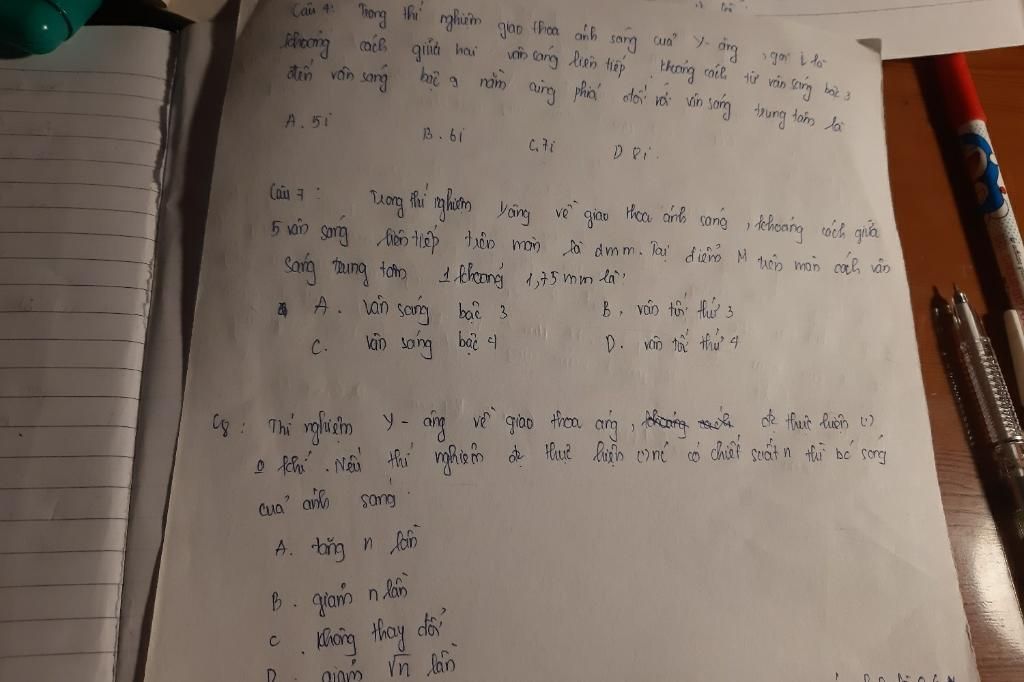 Câu 4: Trong thí nghiệm giao thoa ánh sáng của Y-âng, gọi i là
khoảng cách giữa hai vân sáng liên tiếp khoảng cách từ vân sáng bậc 3
đến vân sáng bậc 9 nằm cùng phía đối với vân sáng trung tâm là
A. 5i
B. 6i
C. 7i
D 8i.
Câu 7: Trong thí nghiệm Yâng về giao thoa ánh sáng, khoảng cách giữa
5 vân sáng liên tiếp trên màn là 2mm. Tại điểm M trên màn cách vân
sáng trung tâm 1 khoảng 1,75 mm là:
A. vân sáng bậc 3
B. vân tối thứ 3
C. vân sáng bậc 4
D. vân tối thứ 4
C8: Thí nghiệm Y-âng về giao thoa áng, đc thực hiện
khí. Nếu thí nghiệm đc thực hiện có chiết suất n thì bc sóng
của ánh sáng
A. tăng n lần
B. giảm n lần
C. không thay đổi
D. giảm √n lần